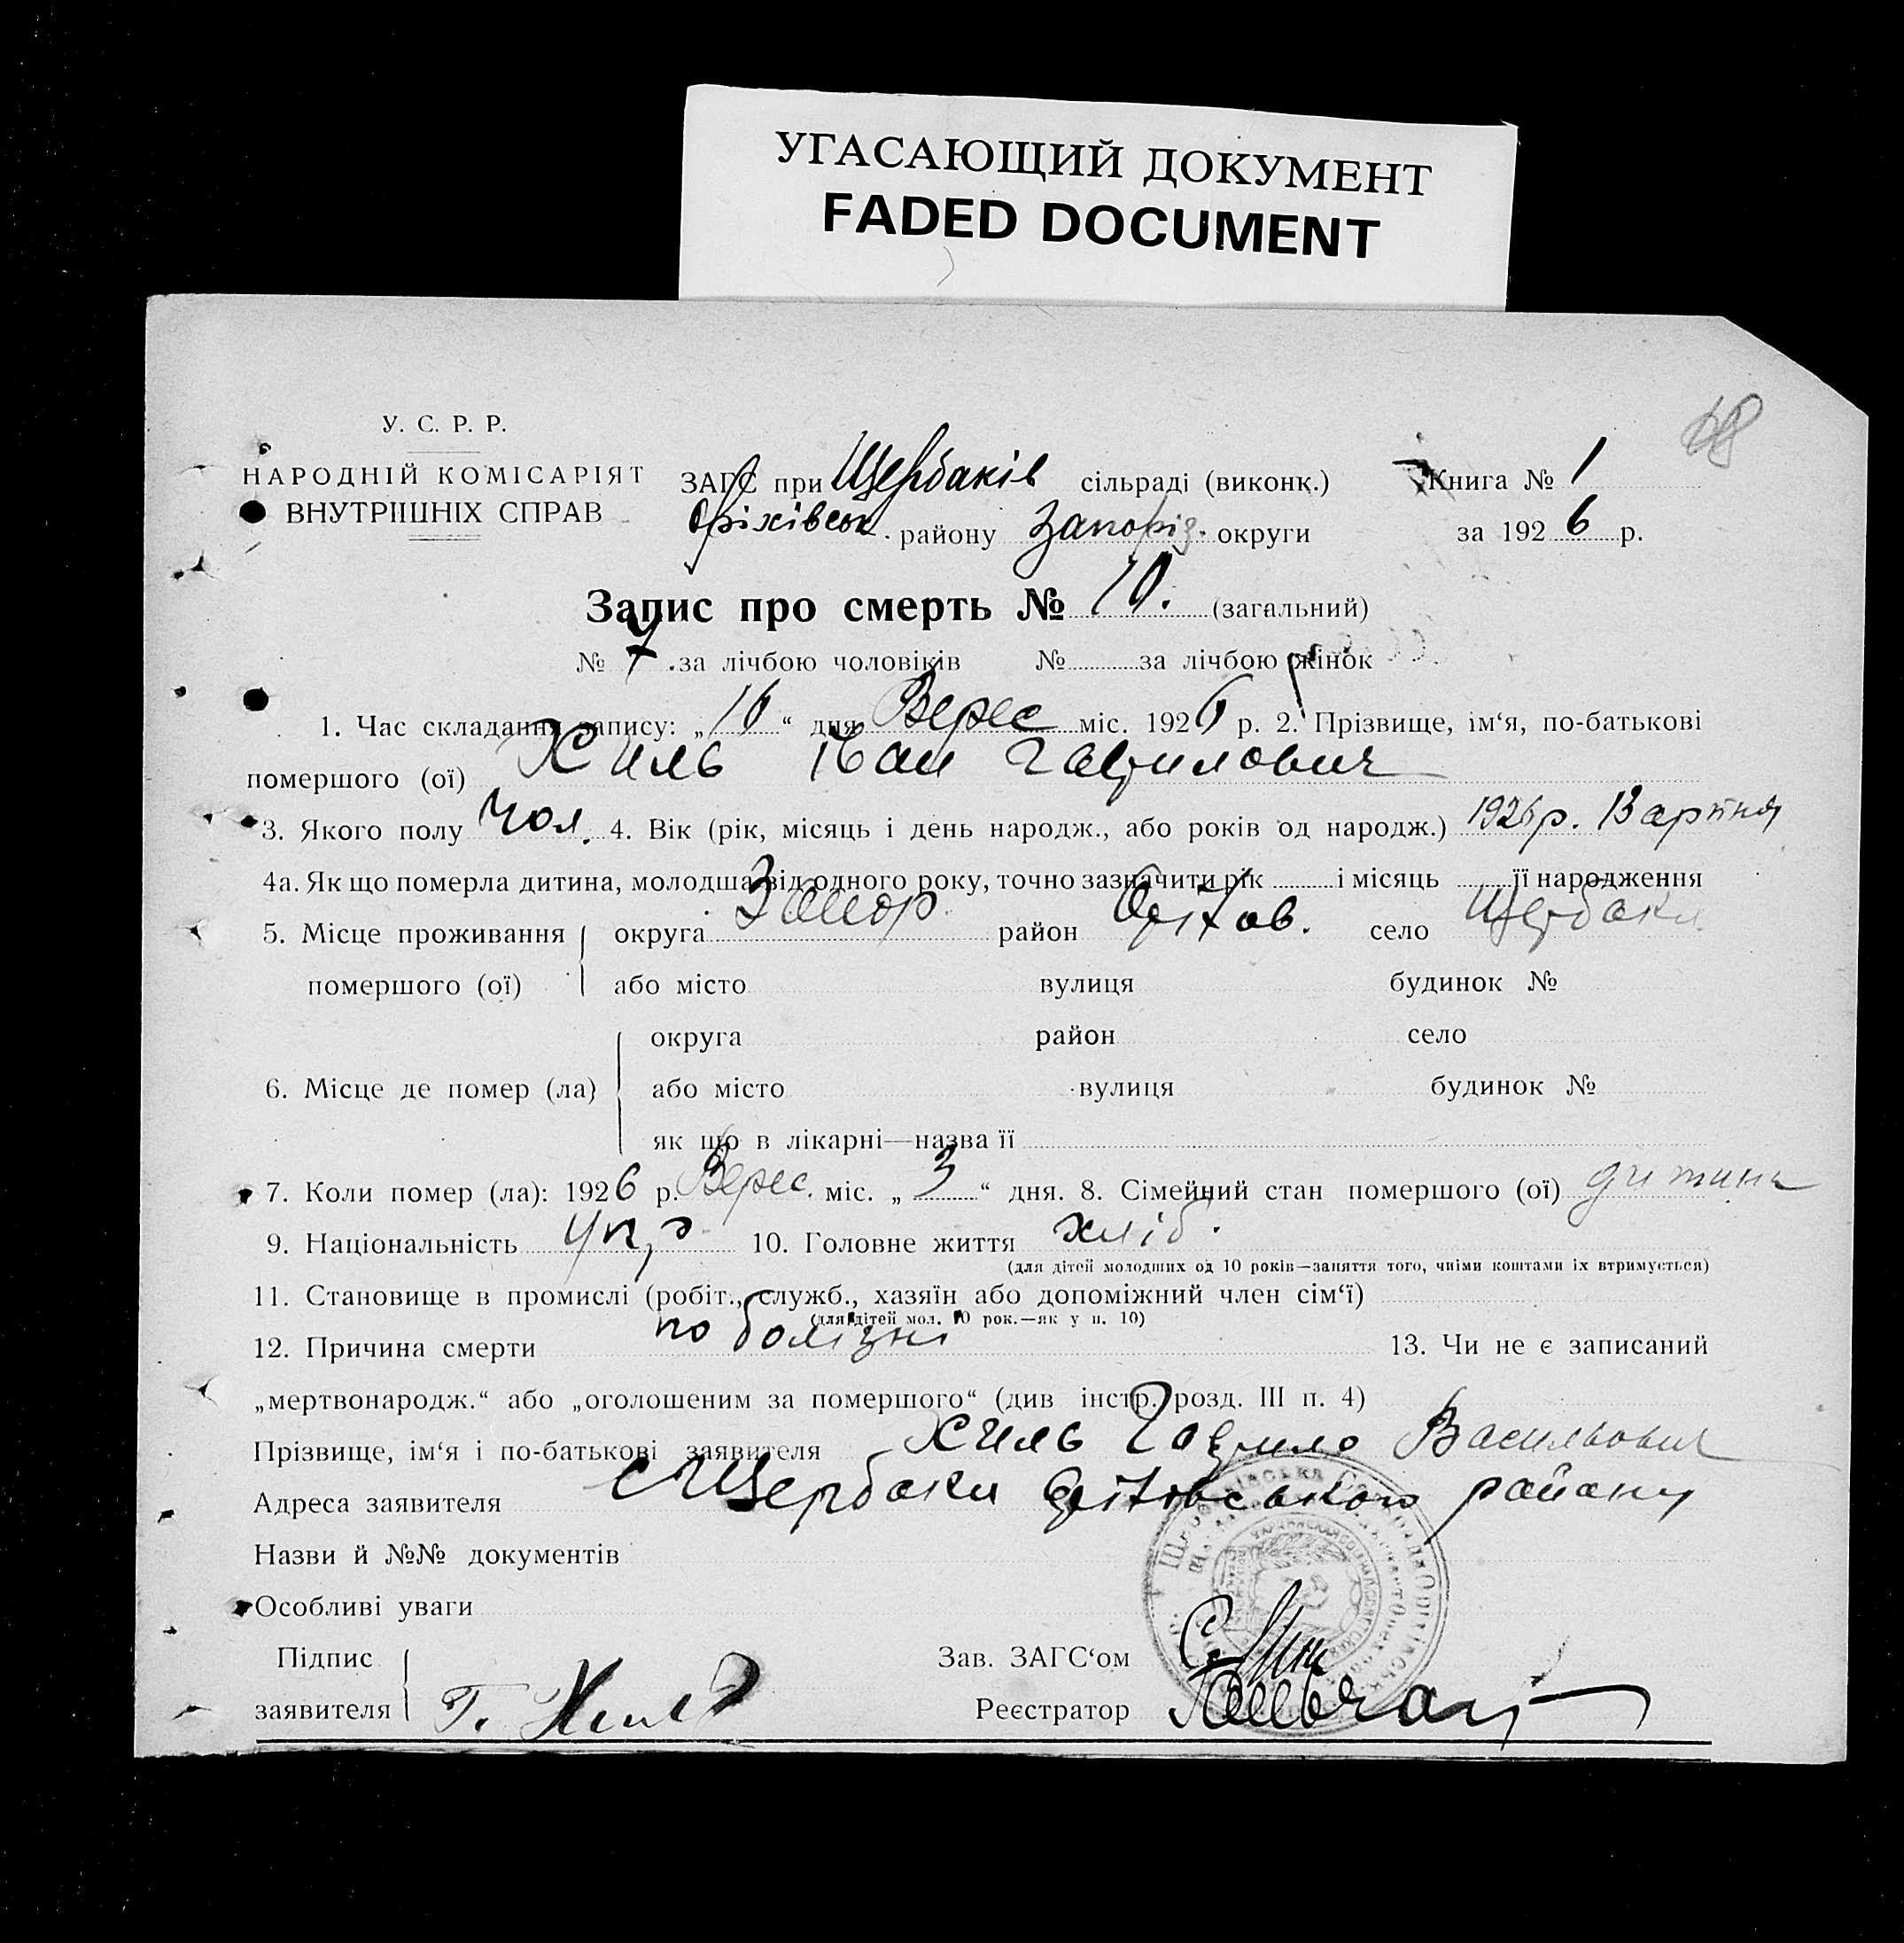 УГАСАЮЩИЙ ДОКУМЕНТ
FADED DOCUMENT
У. С. Р. Р.
НАРОДНІЙ КОМІСАРІЯТ
ВНУТРІШНІХ СПРАВ
ЗАГС при Щербаків сільраді (виконк.)
Оріхівськ. району Запоріз. округи
Книга № 1
за 1926 р.
Запис про смерть № 10. (загальний)
№ 7 за лічбою чоловіків № за лічбою жінок
1. Час складання запису: „16“ дня Верес міс. 1926 р. 2. Прізвище, ім‘я, по-батькові
помершого (ої) Хиль Іван Гаврилович
3. Якого полу чол. 4. Вік (рік, місяць і день народж., або років од народж.) 1926 р.
4а. Як що померла дитина, молодша від одного року, точно зазначити рік і місяць її народження
5. Місце проживання округа Запор район Оріхов. село Щербаки
помершого (ої) або місто вулиця будинок №
округа район село
6. Місце де помер (ла) або місто вулиця будинок №
як що в лікарні—назва її
7. Коли помер (ла): 1926 р. Верес. міс. „3“ дня. 8. Сімейний стан помершого (ої) дитина
9. Національність укр 10. Головне життя хліб.
(для дітей молодших од 10 років—заняття того, чиїми коштами їх втримується)
11. Становище в промислі (робіт., служб., хазяїн або допоміжний член сім‘ї)
(для дітей мол. 10 рок.—як у п. 10)
12. Причина смерти по болізні 13. Чи не є записаний
„мертвонародж.“ або „оголошеним за помершого“ (див інстр. розд. III п. 4)
Прізвище, ім‘я і по-батькові заявителя Хиль Гаврило Васильович
Адреса заявителя с Щербаки Оріховського району
Назви й №№ документів
Особливі уваги
Підпис
заявителя Г. Хиль
Зав. ЗАГС‘ом
Реєстратор